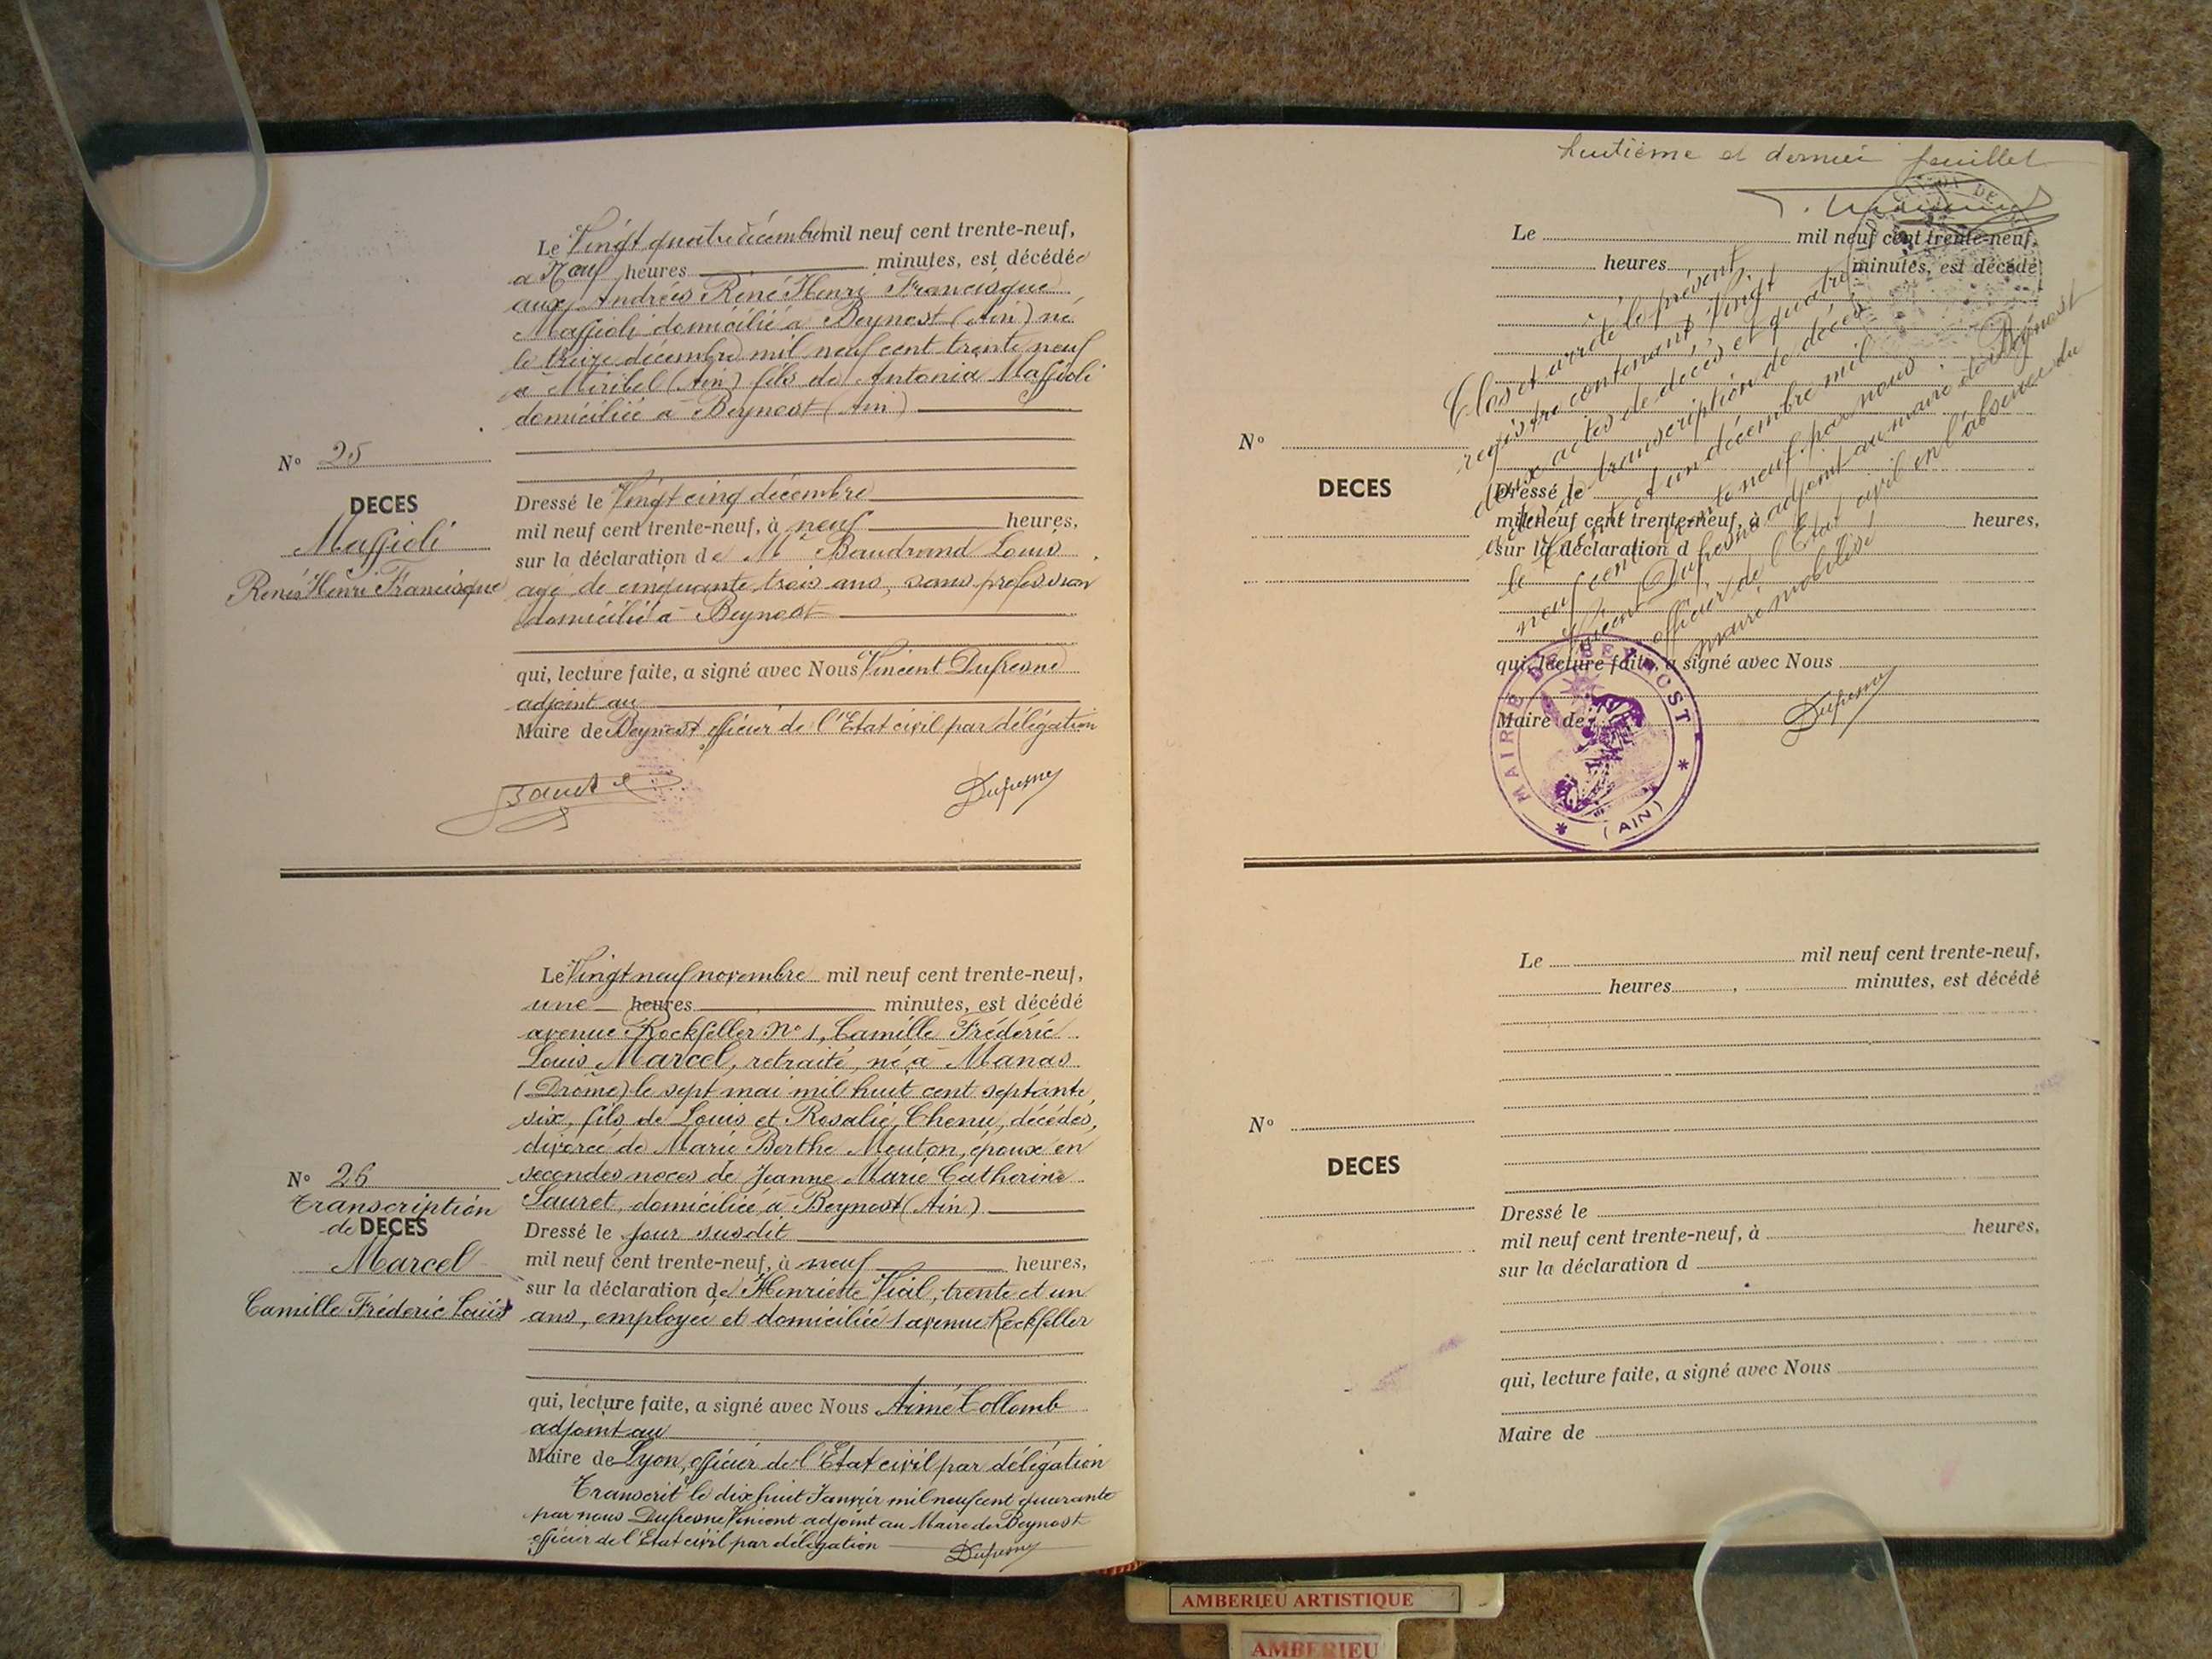 Le Vingt quatre décembre mil neuf cent trente-neuf,
a Neuf heures minutes, est décédé
aux Andrées René Henri Francisque
Maffioli domicilié à Beynost (Ain) né
le treize décembre mil neuf cent trente neuf
à Miribel (Ain) fils de Antonia Maffioli
domiciliée à Beynost (Ain)
N° 25
DECES
Maffioli
René Henri Francisque
Dressé le Vingt cinq décembre
mil neuf cent trente-neuf, à neuf heures,
sur la déclaration de Mr Baudrand Louis
agé de cinquante trois ans, sans profession
domicilié à Beynost
qui, lecture faite, a signé avec Nous Vincent Dufresne
adjoint au
Maire de Beynost officier de l'Etat civil par délégation
Dufresne
Le Vingt neuf novembre mil neuf cent trente-neuf,
une heures minutes, est décédé
avenue Rockfeller N° 1, Camille Frédéric
Louis Marcel, retraité, né à Manas
(Drôme) le sept mai mil huit cent septante
six, fils de Louis et Rosalie Chenu, décédés,
divorcé de Marie Berthe Mouton, époux en
secondes noces de Jeanne Marie Catherine
Sauret, domicilié à Beynost (Ain)
N° 26
Transcription
de DECES
Marcel
Camille Fréderic Louis
Dressé le jour susdit
mil neuf cent trente-neuf, à neuf heures,
sur la déclaration de Henriette Vial, trente et un
ans, employée et domiciliée 1 avenue Rockfeller
qui, lecture faite, a signé avec Nous Aimé Collomb
adjoint au
Maire de Lyon, officier de l'Etat civil par délégation
Transcrit le dix huit Janvier mil neuf cent quarante
par nous Dufresne Vincent adjoint au Maire de Beynost
officier de l'Etat civil par délégation
Dufresne
huitième et dernier feuillet
Le mil neuf cent trente-neuf,
heures minutes, est décédé
Clos et arrêté le présent
registre contenant vingt
deux actes de décès et quatre
de transcription de décès
le trente et un décembre mil
neuf cent trente neuf par nous
Vincent Dufresne adjoint au maire de Beynost
officier de l'Etat civil en l'absence du
maire mobilisé
N°
DECES
Dressé le
mil neuf cent trente-neuf, à heures,
sur la déclaration d
qui, lecture faite, a signé avec Nous
Maire de
Dufresne
MAIRIE DE BEYNOST
(AIN)
Le mil neuf cent trente-neuf,
heures minutes, est décédé
N°
DECES
Dressé le
mil neuf cent trente-neuf, à heures,
sur la déclaration d
qui, lecture faite, a signé avec Nous
Maire de
AMBERIEU ARTISTIQUE
AMBERIEU